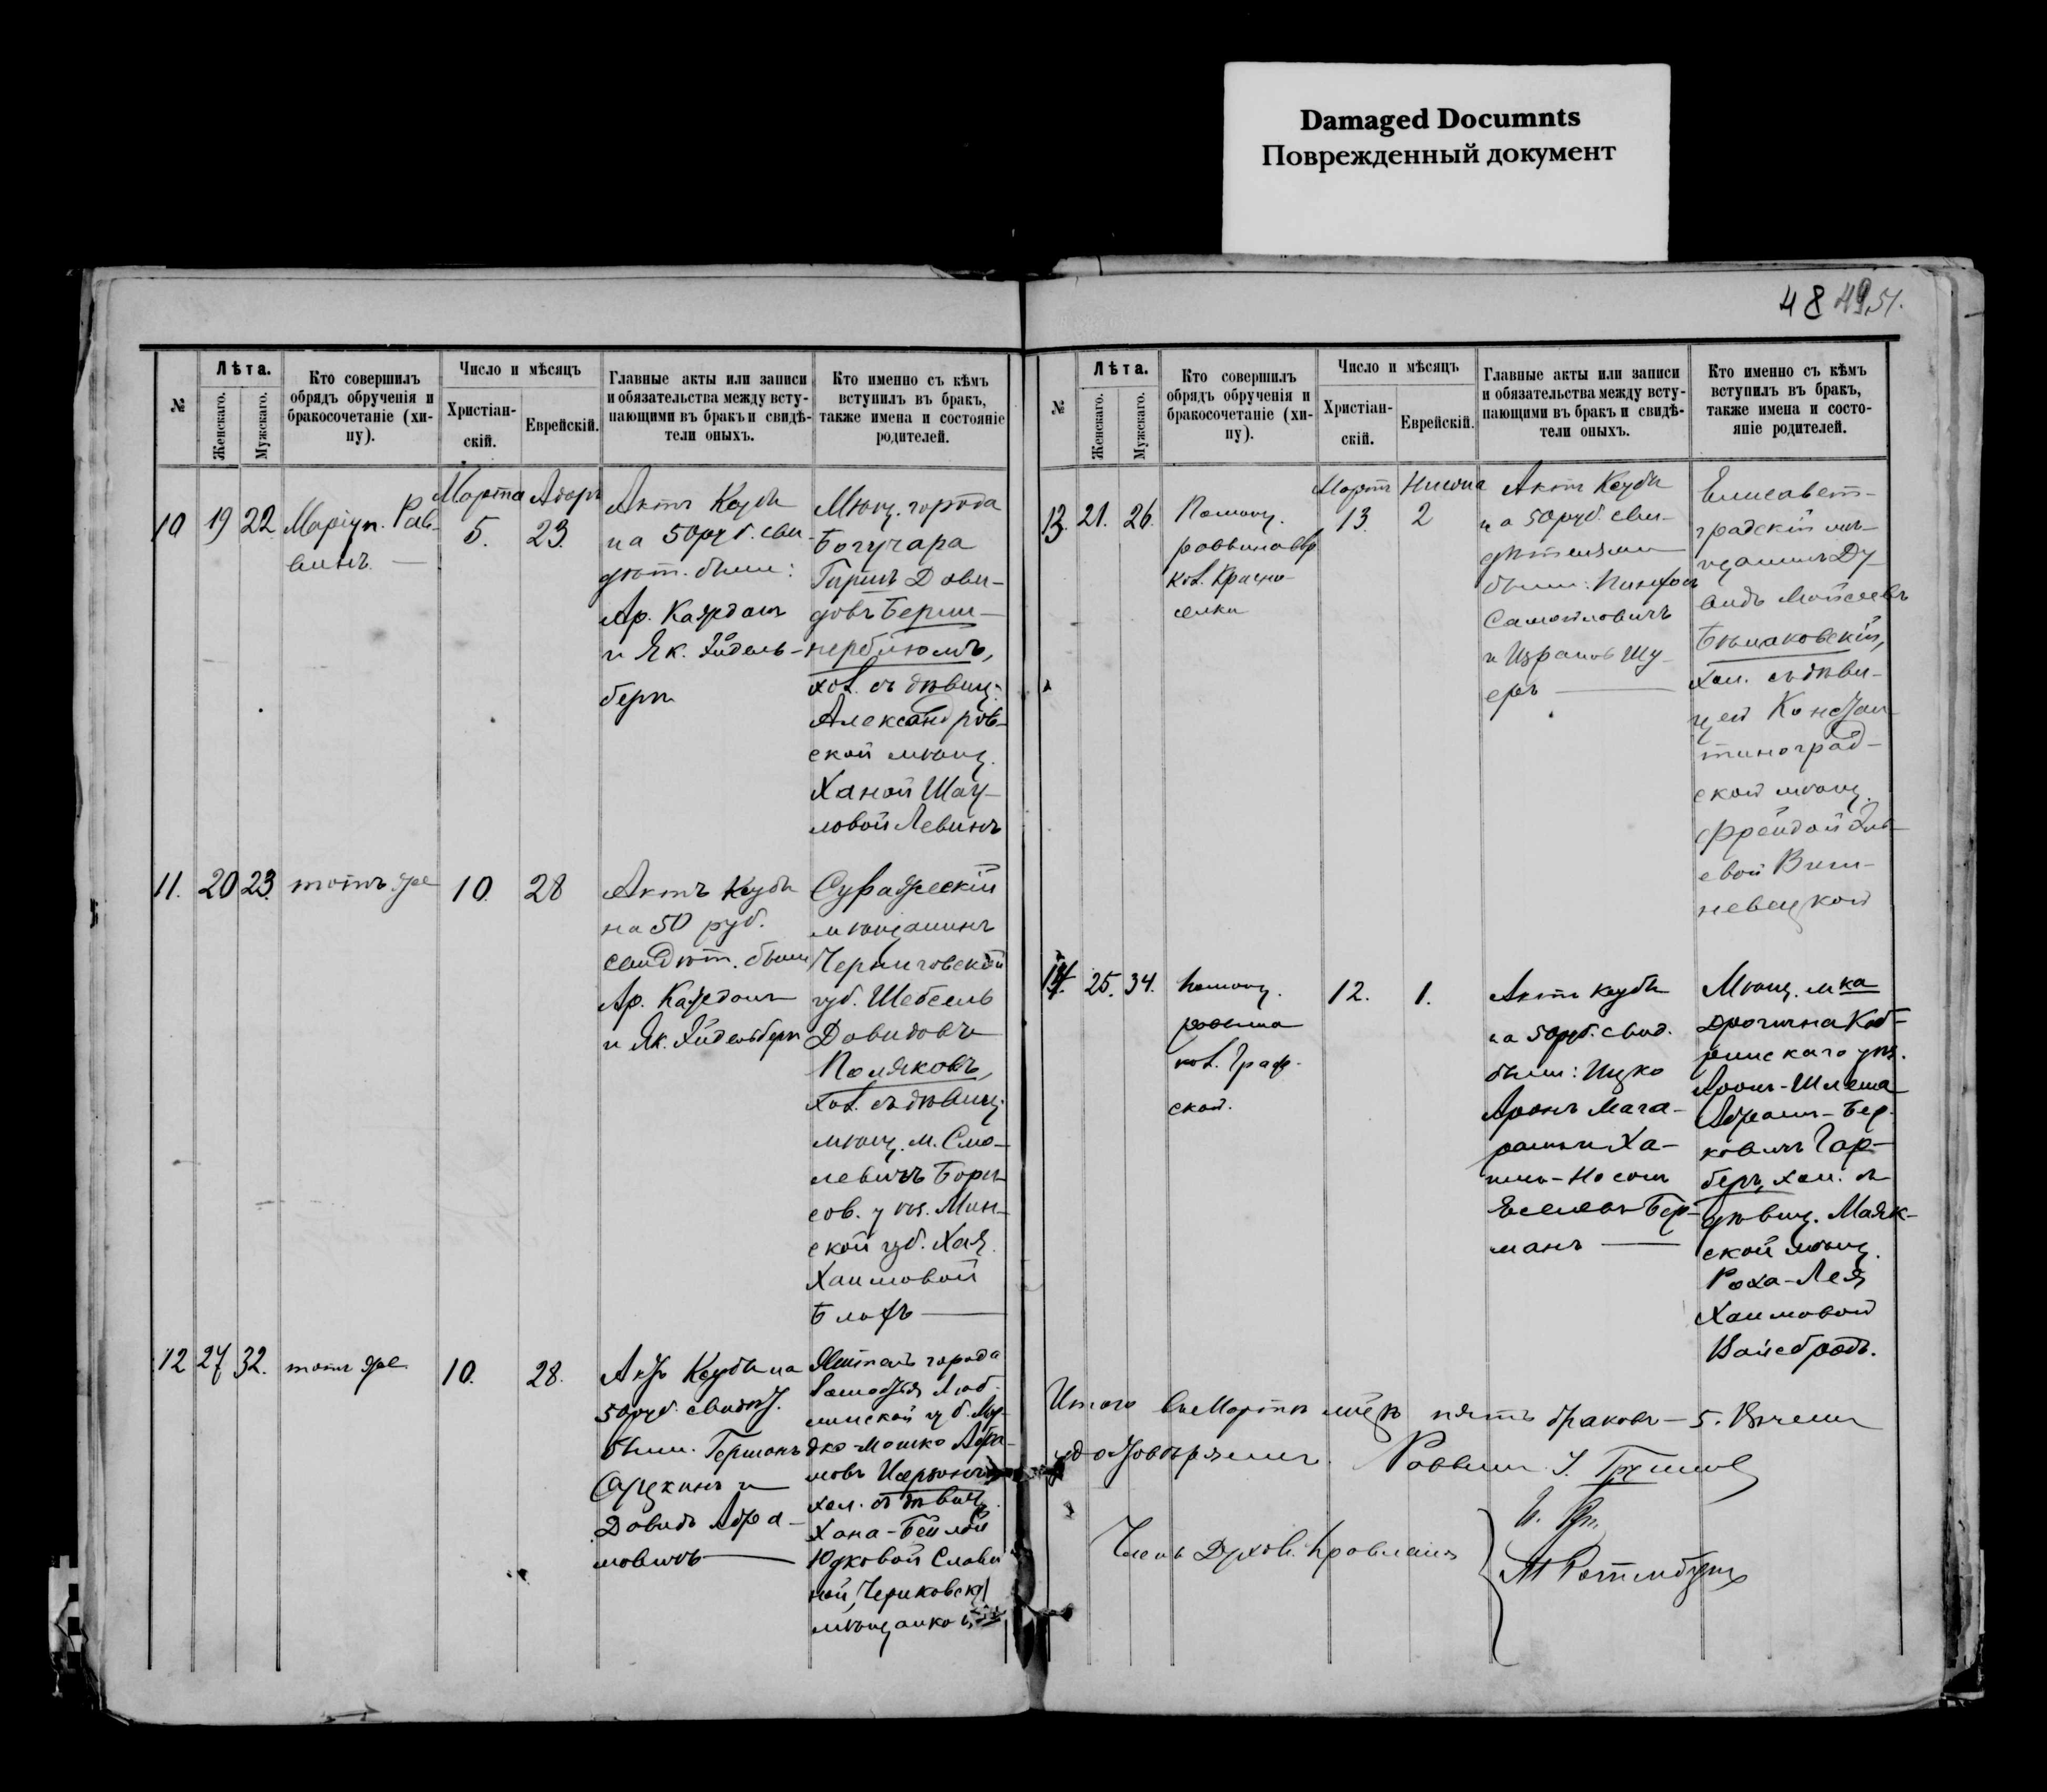 Damaged Documnts
Поврежденный документ
48 49 51.
№
Лѣта.
Женскаго.
Мужскаго.
Кто совершилъ
обрядъ обрученія и
бракосочетаніе (хи-
пу).
Число и мѣсяцъ
Христіан-
скій.
Еврейскій.
Главные акты или записи
и обязательства между всту-
пающими въ бракъ и свидѣ-
тели оныхъ.
Кто именно съ кѣмъ
вступилъ въ бракъ,
также имена и состояніе
родителей.
10
19
22
Маріуп. Рав-
винъ
Марта
5.
Адаръ
23.
Актъ Кеубы
на 50 руб. сви-
дѣт. были:
Ар. Каждан
и Як. Эйдель-
берг
Мѣщ. города
Богучара
Гиршъ Дави-
довъ Берш-
хол. съ дѣвиц.
Александров-
ской мѣщ.
Ханой Шау-
ловой Левинъ
11.
20
23.
тотъ же
10.
28
Актъ Кеубы
на 50 руб.
свидѣт. были
Ар. Каждан
и Як. Эйдельберг
Суражскій
мѣщанинъ
Черниговской
губ. Шебсель
Давидовъ
Поляковъ,
хол. съ дѣвиц.
мѣщ. м. Смо-
левичъ Бори-
сов. уѣз. Мин-
ской губ. Хая
Хаимовой
12
27
32.
тотъ же
10.
28.
Актъ Кеубы на
50 руб. свидѣт.
были. Германъ
и
Давидъ Абра-
мовичъ
Житель города
Замостья Люб-
линской губ.
мовъ
хол. съ дѣвиц.
Хана-Бейлой
Юдковой Слави
ной, Чериковск.
мѣщанкой
№
Лѣта.
Женскаго.
Мужскаго.
Кто совершилъ
обрядъ обрученія и
бракосочетаніе (хи-
пу).
Число и мѣсяцъ
Христіан-
скій.
Еврейскій.
Главные акты или записи
и обязательства между всту-
пающими въ бракъ и свидѣ-
тели оныхъ.
Кто именно съ кѣмъ
вступилъ въ бракъ,
также имена и состо-
яніе родителей.
13.
21.
26.
Помощ.
раввина Евр
кол. Красно-
селки
Мартъ
13.
Нисона
2
Актъ Кеубы
на 50 руб. сви-
дѣтелями
были: Пинхос
Самойловичъ
и Израиль Шу-
еръ
Елисавет-
градскій мѣ-
щанинъ Ду-
видъ Мойсеевъ
хол. съ дѣви-
цей Констан-
тиноград-
ской мѣщ.
Фрейдой
евой Виш-
невецкой
14.
25.
34.
Помощ.
раввина
кол. Граф-
ской.
12.
1.
Актъ Кеубы
на 50 руб. свид.
были: Ицко
Аронъ Мага-
рамъ и Ха-
имъ-Носон
Евсеевъ Бер-
манъ
Мѣщ. м-ка
Дрогична Коб-
ринскаго уѣз.
Аронъ-Шлема
Абрамъ-Бер-
ковичъ Гар-
беръ, хол. съ
дѣвиц. Маяк-
ской мѣщ.
Роха-Лея
Хаимовой
Вайсбродъ.
Итого въ Мартѣ мѣс. пять браковъ - 5. В чемъ
удостовѣряемъ. Раввинъ
Членъ Духов. Правленія